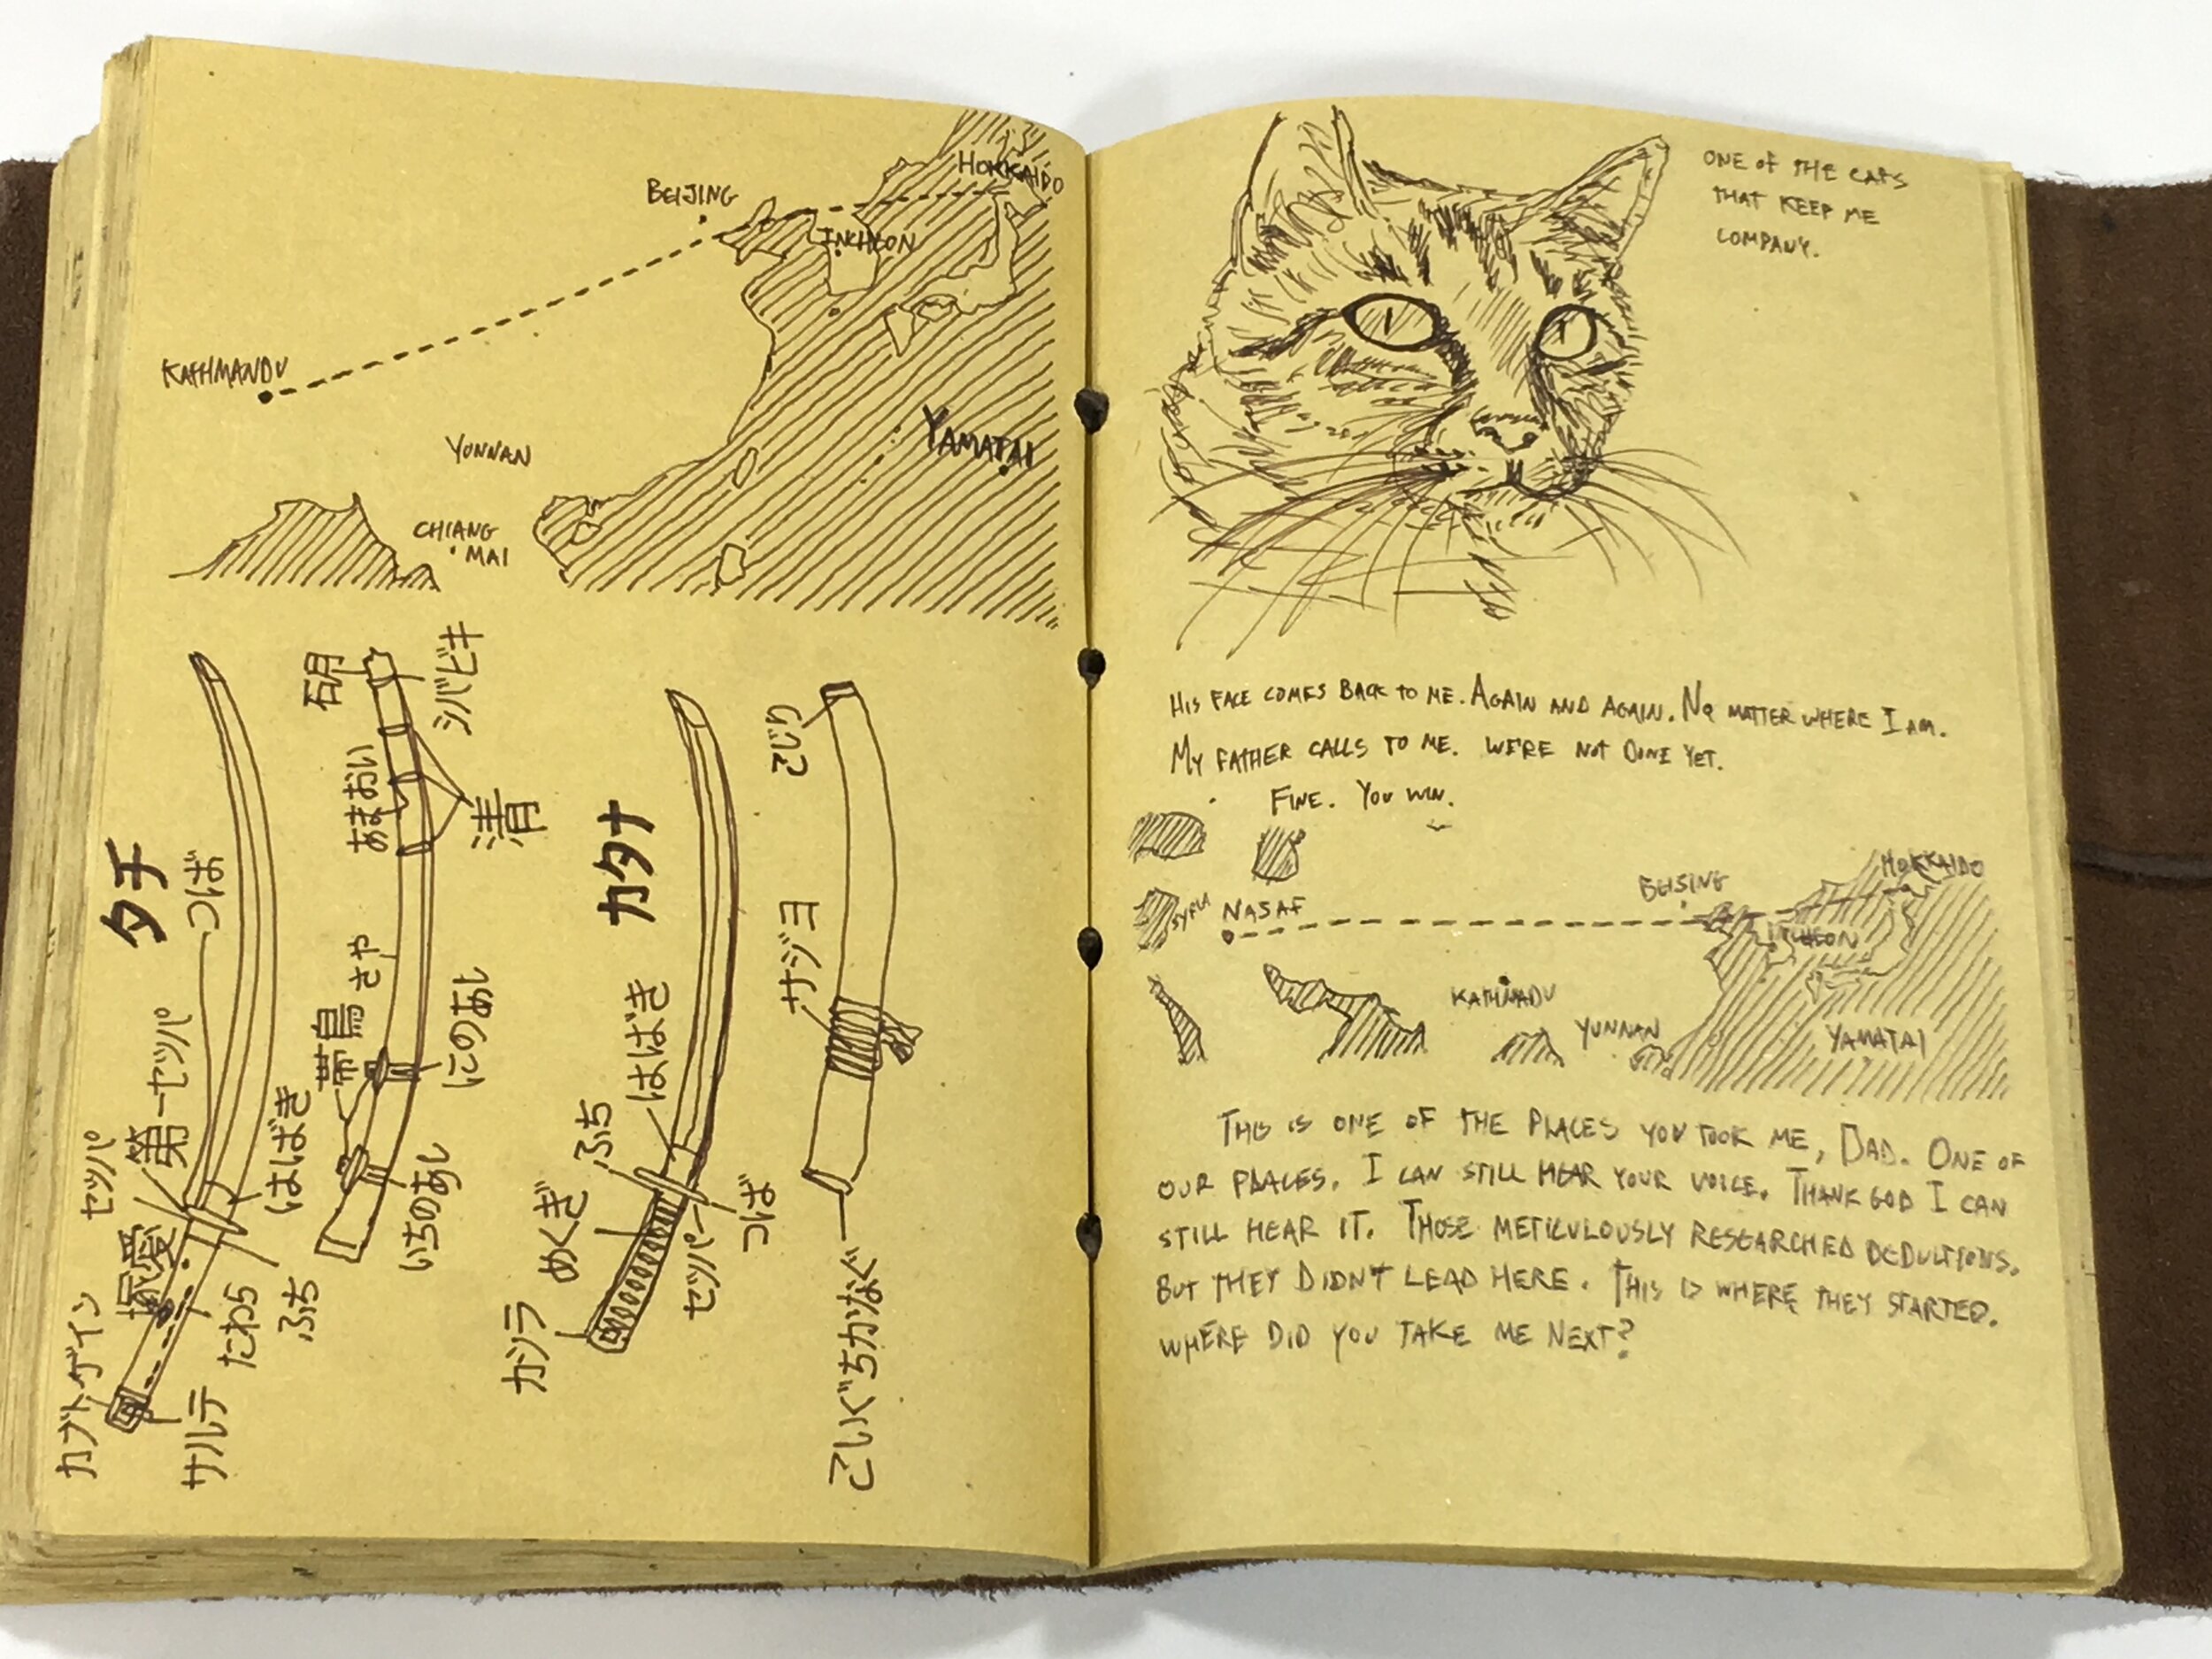 HOKKAIDO
BEIJING
INCHEON
KATHMANDU
YAMATAI
YUNNAN
CHIANG
MAI
タチ
つば
セッパ
第一セッパ
はばき
カブトガイン
サルテ
たわら
ふち
石月
シバビキ
あまおい
清
さや
帯鳥
にのあし
いちのあし
カタナ
はばき
ふち
めくぎ
つば
セッパー
カシラ
こじり
サジヨ
こいぐち力なぐ
ONE OF THE CATS
THAT KEEP ME
COMPANY.
HIS FACE COMES BACK TO ME. AGAIN AND AGAIN. NO MATTER WHERE I AM.
MY FATHER CALLS TO ME. WE'RE NOT DONE YET.
FINE. YOU WIN.
HOKKAIDO
BEIJING
NASAF
INCHEON
KATHMADU
YUNNAN
YAMATAI
THIS IS ONE OF THE PLACES YOU TOOK ME, DAD. ONE OF
OUR PLACES. I CAN STILL HEAR YOUR VOICE. THANK GOD I CAN
STILL HEAR IT. THOSE METICULOUSLY RESEARCHED DEDUCTIONS.
BUT THEY DIDN'T LEAD HERE. THIS IS WHERE THEY STARTED.
WHERE DID YOU TAKE ME NEXT?